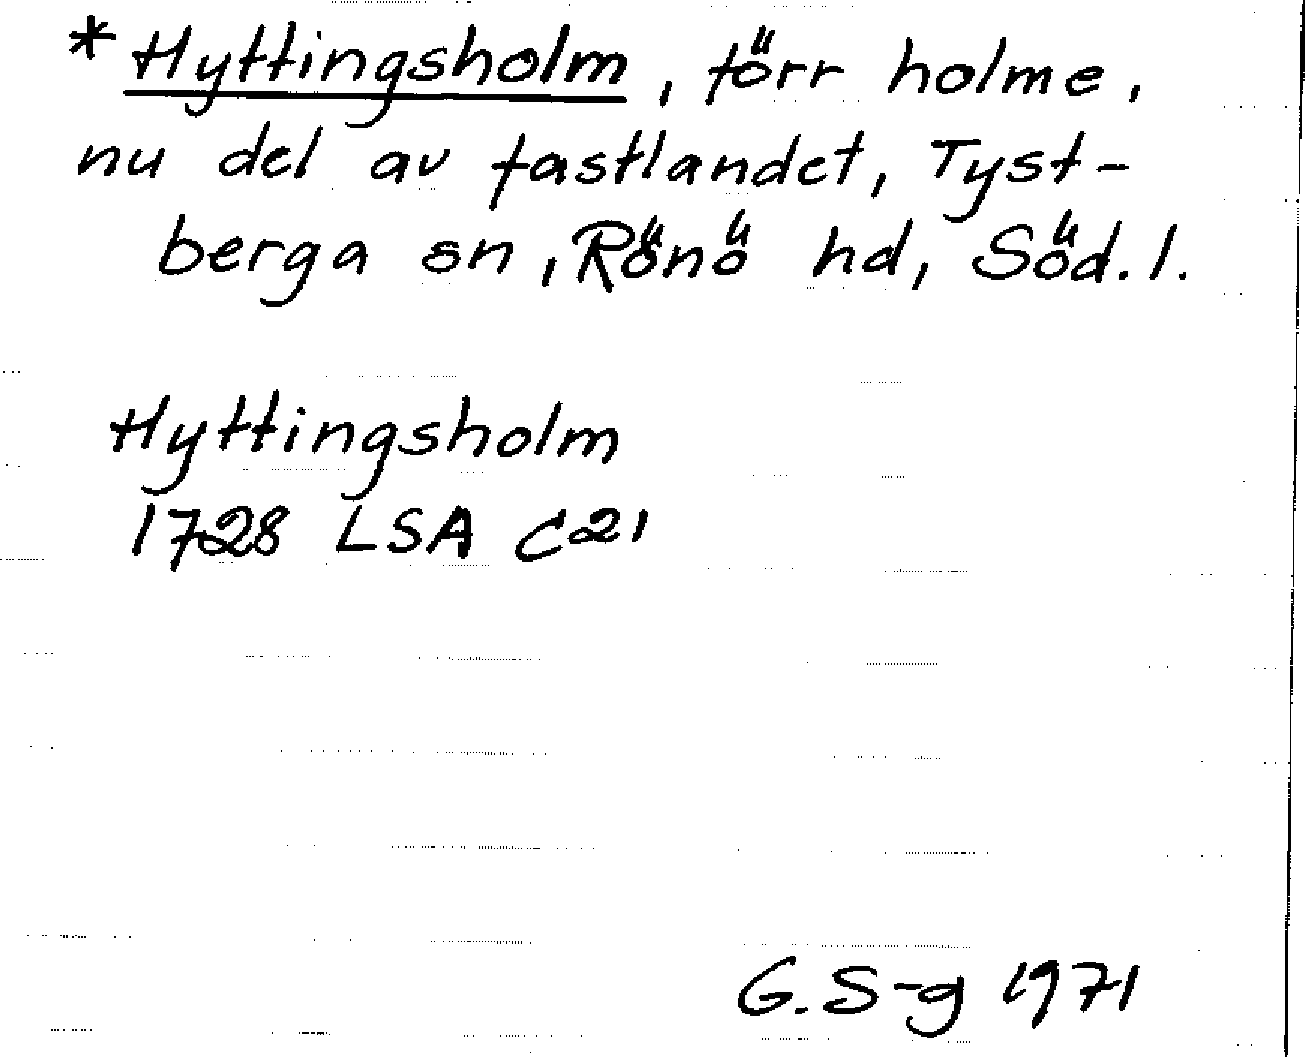 *Hyttingsholm, förr holme,
nu del av fastlandet, Tyst-
berga sn, Rönö hd, Söd. l.
Hyttingsholm
1728 LSA C21
G. S-g 1971